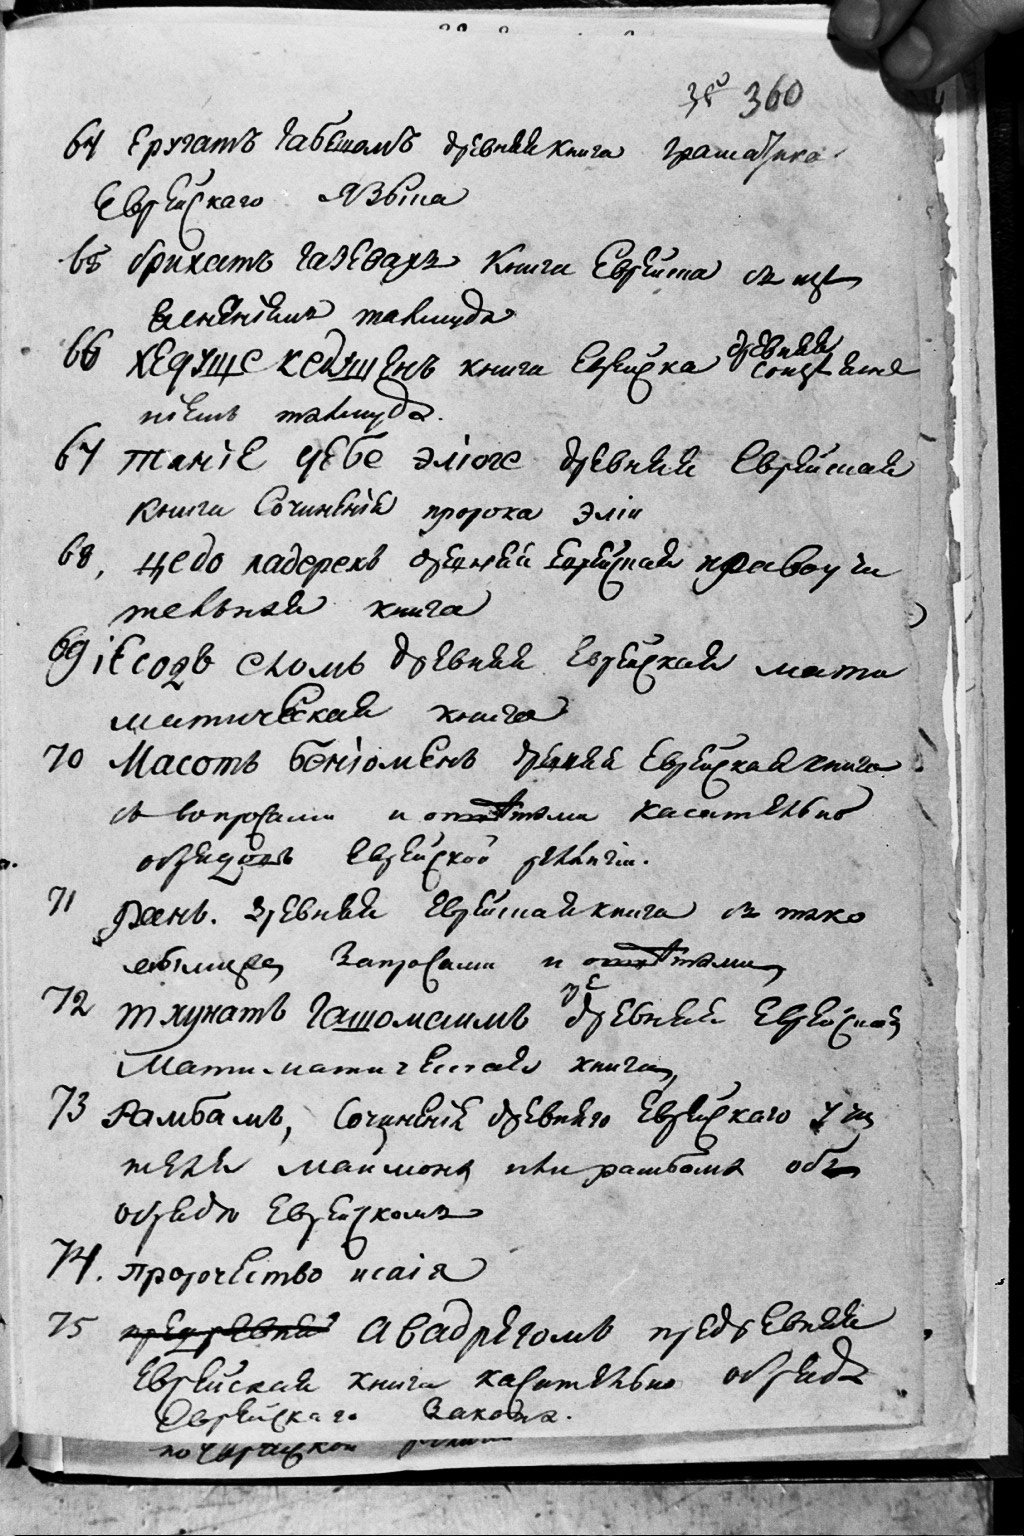 360
64 Еругатъ Габешамъ древняя книга граматика
Еврейскаго языка
65 брикатъ газедахъ книга Еврейска съ изъ
ясненіемъ талмуда
66 хедуще кедушенъ книга Еврейска древняя
съ изъясне
ніемъ талмуда.
67 таніе дебе эліоге древняя Еврейская
книга Сочиненій пророка Эліи
68, цедо ладерекъ древняя Еврейская нравоучи
тельная книга
69 іесодъ сломъ древняя Еврейская мати
матическая книга
70 Масотъ беніоменъ древняя Еврейская книга
съ вопросами и отвѣтами касательно
обрядовъ Еврейской религіи.
71 древняя Еврейская книга съ тако
выми Запросами и отвѣтами
72 тхунатъ гашомаимъ древняя Еврейская
Матиматическая книга
73 Рамбамъ, Сочиненій древняго Еврейскаго учи
теля Маймона или рамбама объ
обрядѣ Еврейскомъ
74. пророчество исаія
75 предревняя Авадрегомъ предревняя
Еврейская книга касательно обряда
Еврейскаго Закона.